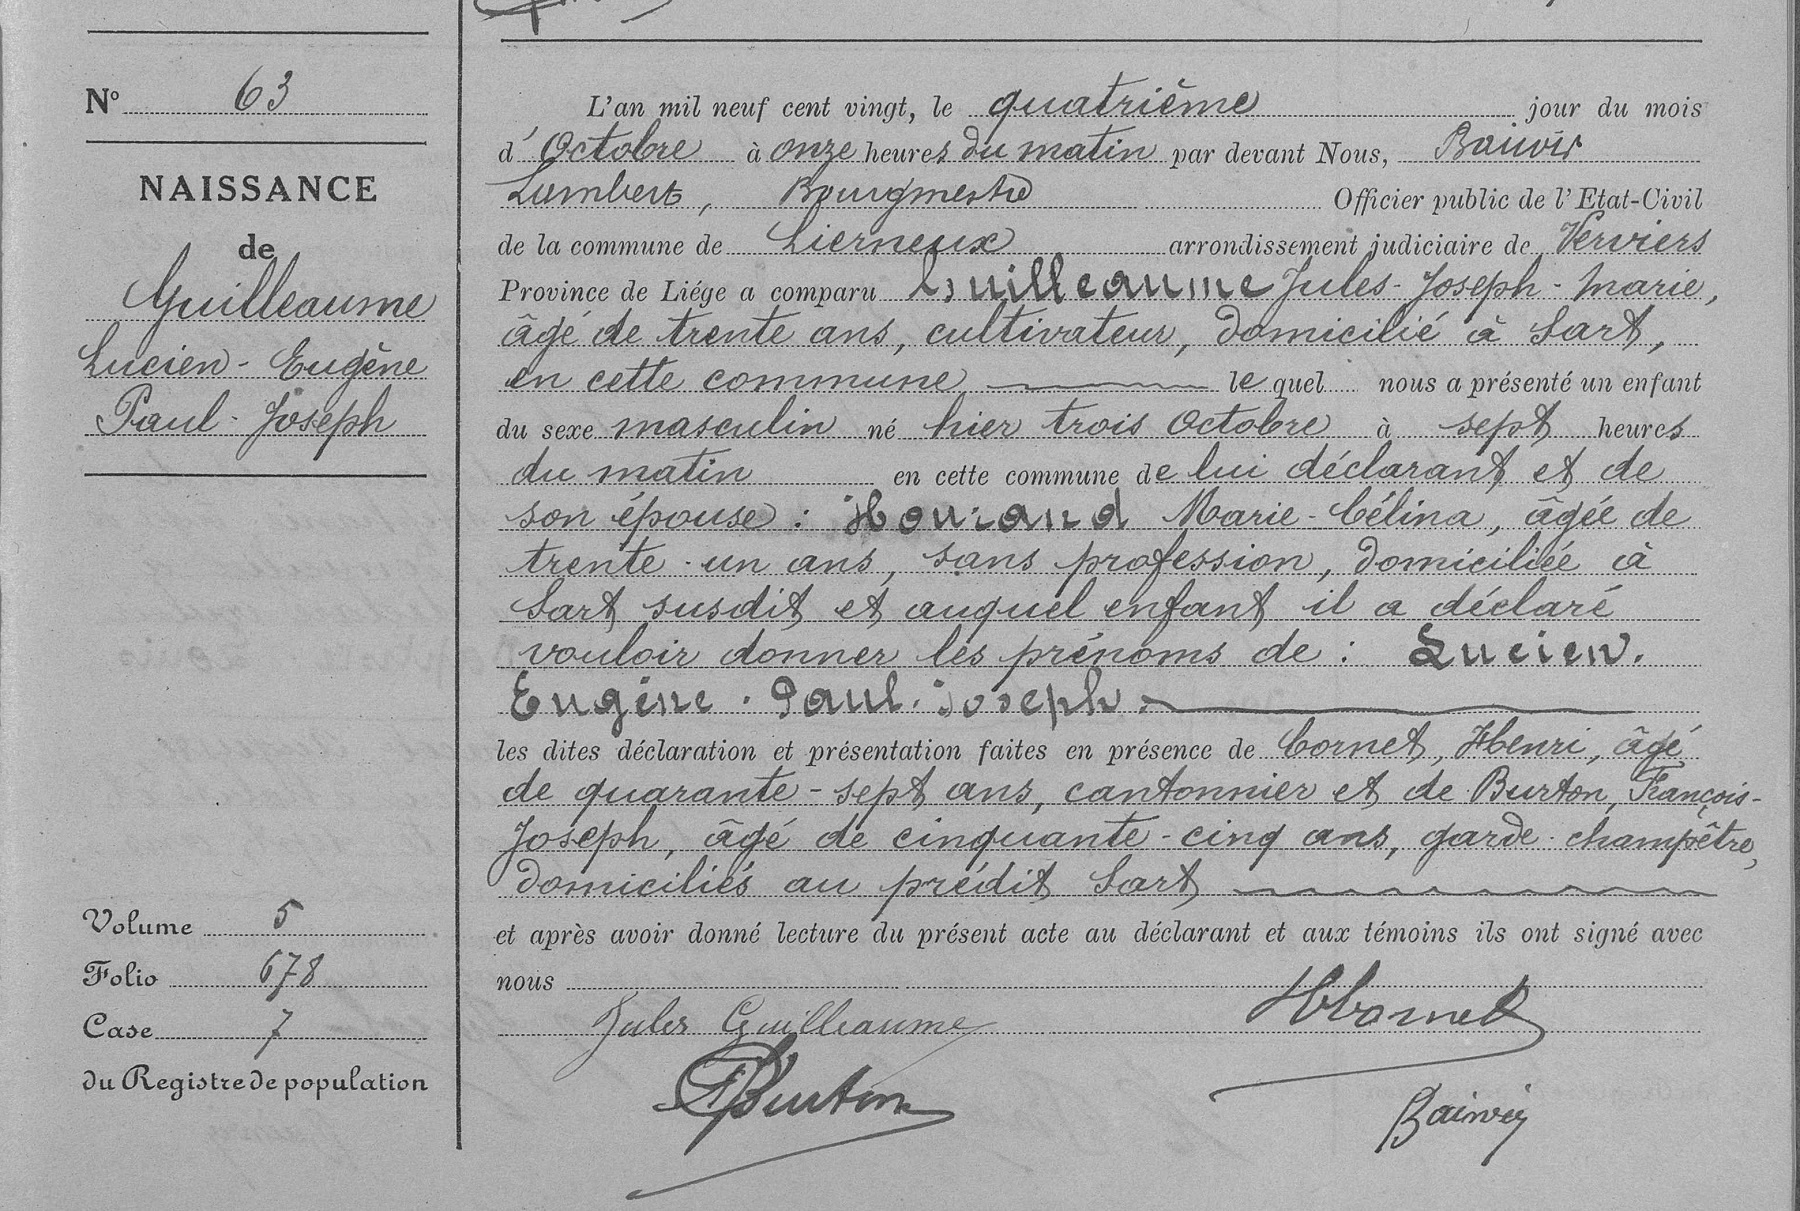 N° 63
NAISSANCE
de
Guilleaume
Lucien - Eugène
Paul - Joseph
Volume 5
Folio 678
Case 7
du Registre de population
L'an mil neuf cent vingt, le quatrième jour du mois
d'Octobre à onze heures du matin par devant Nous, Baiwir
Lambert, Bourgmestre Officier public de l'Etat-Civil
de la commune de Lierneux arrondissement judiciaire de Verviers
Province de Liége a comparu Guilleaume Jules - Joseph - Marie,
âgé de trente ans, cultivateur, domicilié à Sart,
en cette commune le quel nous a présenté un enfant
du sexe masculin né hier trois Octobre à sept heures
du matin en cette commune de lui déclarant et de
son épouse : Honrand Marie - Célina, âgée de
trente - un ans, sans profession, domiciliée à
Sart susdit et auquel enfant il a déclaré
vouloir donner les prénoms de : Lucien.
Eugène - Paul - Joseph.
les dites déclaration et présentation faites en présence de Cornet, Henri, âgé
de quarante - sept ans, cantonnier et de Burton, François -
Joseph, âgé de cinquante - cinq ans, garde - champêtre,
domiciliés au prédit Sart
et après avoir donné lecture du présent acte au déclarant et aux témoins ils ont signé avec
nous
Jules Guilleaume HCornet
FBurton Baiwir